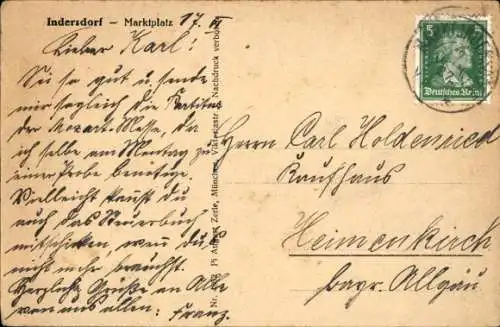 Indersdorf – Marktplatz 17. VI
Lieber Karl!
Sei so gut u. sende
mir sogleich die Partitur
der Mozart-Messe, da
ich selbe am Montag zu
einer Probe benötige.
Vielleicht kannst du
auch das Steuerbuch
mitschicken, wenn du's
nicht mehr brauchst.
Herzliche Grüße an Alle
von uns allen: Franz.
Nr. Pl August Zerle, München, Nachdruck verboten
5
Deutsches Reich
Herrn Carl Holdenried
Kaufhaus
Heimenkirch
bayr. Allgäu